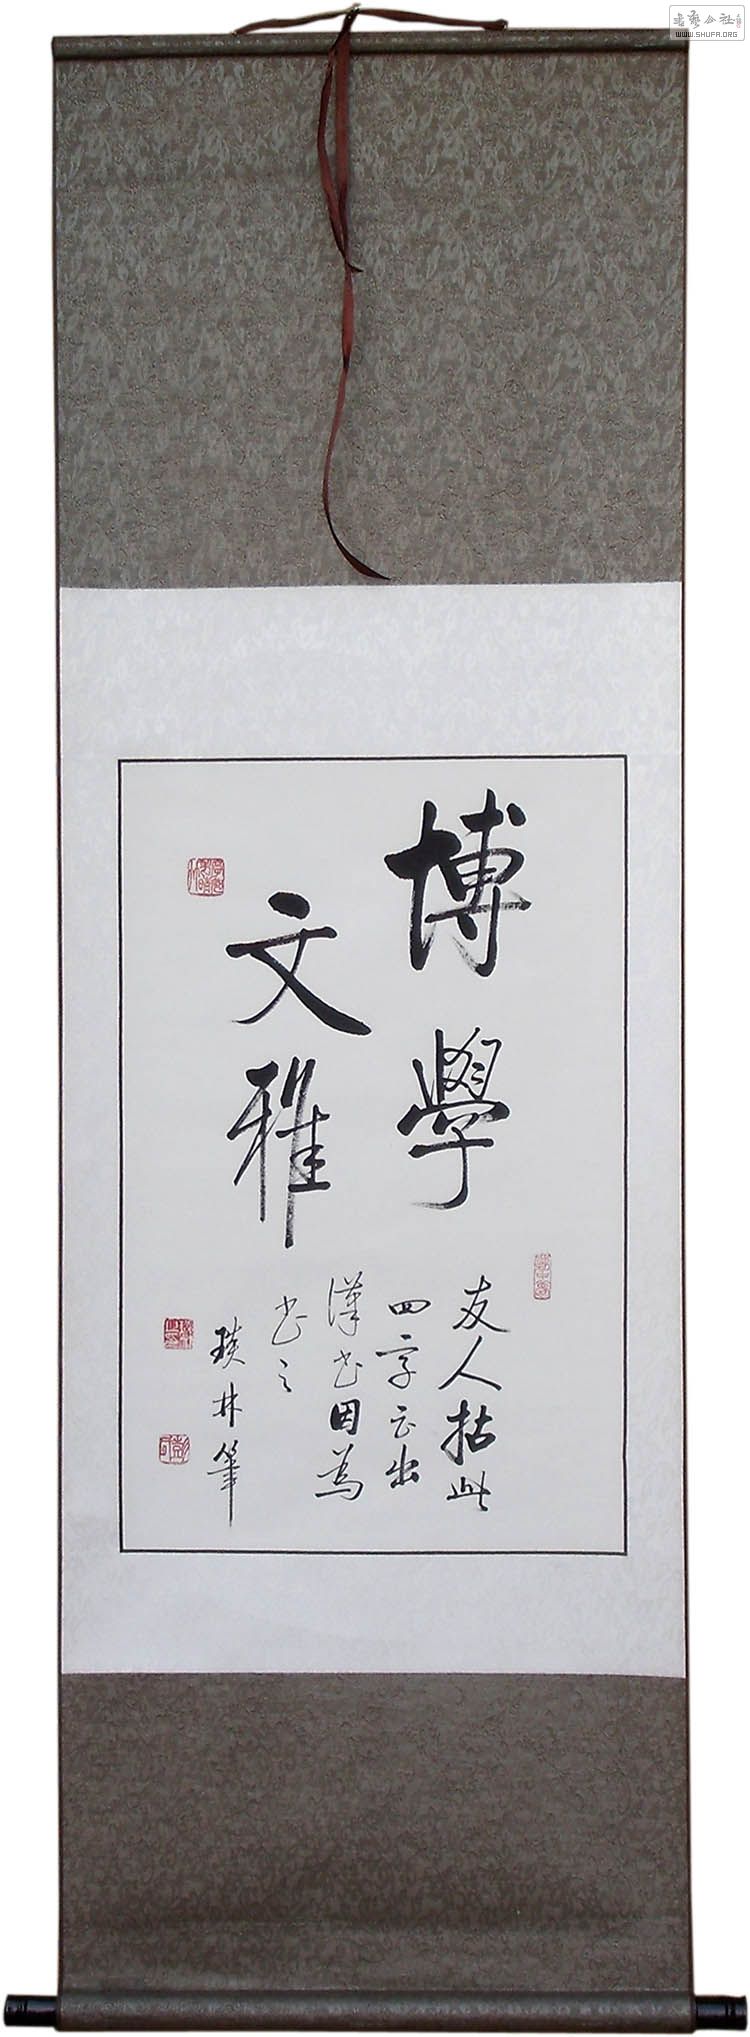 博學
文雅
友人拈此
四字云出
漢書因為
書之
琰林筆
書藝公社
WWW.SHUFA.ORG